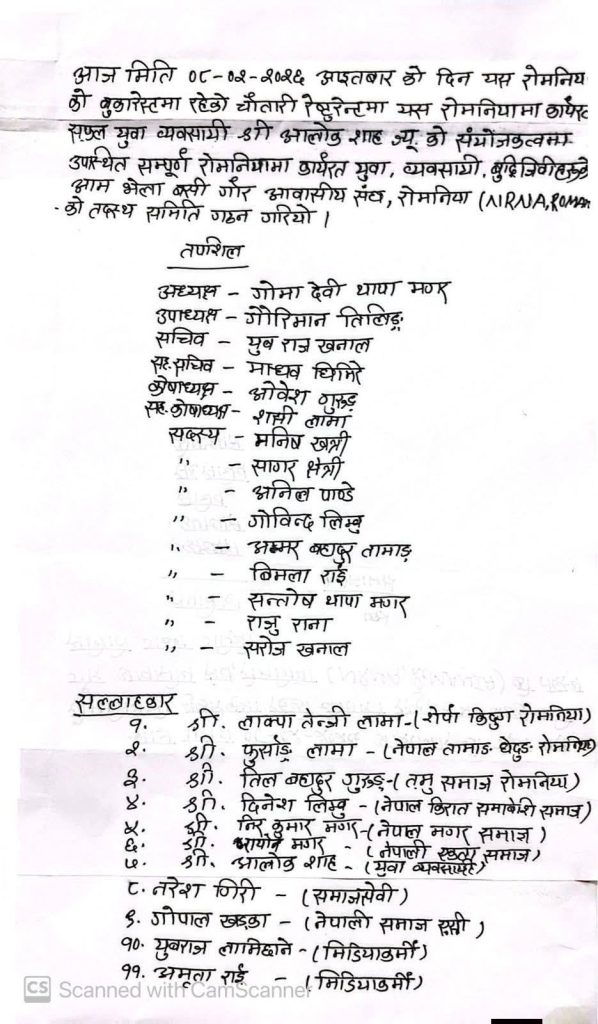 आज मिति ०८-०२-२०२६ आइतबार को दिन यस रोमानिया
को बुकारेस्टमा रहेको चौतारी रेष्टुरेन्टमा यस रोमानियामा कार्यरत
सफल युवा व्यवसायी श्री आलोक शाह ज्यू को संयोजकत्वमा
उपस्थित सम्पूर्ण रोमनियामा कार्यरत युवा, व्यवसायी, बुद्धिजिवीहरूको
आम भेला बसी गैर आवासीय संघ, रोमनिया (NRNA, ROMAN
को तदस्थ समिति गठन गरियो ।
तपशिल
अध्यक्ष - गोमा देवी थापा मगर
उपाध्यक्ष - गौरिमान तिलिङ्ग
सचिव - युब राज खनाल
सह. सचिव - माधव घिमिरे
कोषाध्यक्ष - ओवेश गुरुङ
सह. कोषाध्यक्ष - शसी लामा
सदस्य - मनिष खत्री
" - सागर क्षेत्री
" - अनिल पाण्डे
" - गोविन्द लिम्बु
" - अम्मर बहादुर तामाङ
" - बिमला राई
" - सन्तोष थापा मगर
" - राजु राना
" - सरोज खनाल
सल्लाहकार
१. श्री. लाक्पा तेन्जी लामा - (शेर्पा किदुग रोमानिया)
२. श्री. फुर्साङ लामा - (नेपाल तामाङ घेदुङ रोमानिया
३. श्री. तिल बहादुर गुरुङ - (तमु समाज रोमनिया)
४. श्री. दिनेश लिम्बु - (नेपाल किरात समाबेशी समाज)
५. श्री. निर कुमार मगर - (नेपाल मगर समाज)
६. श्री. मगर - (नेपाली एकता समाज)
७. श्री. आलोक शाह - (युवा व्यवसायी)
८. नरेश गिरी - (समाजसेवी)
९. गोपाल खड्का - (नेपाली समाज)
१०. युबराज लामिछाने - (मिडियाकर्मी)
११. अमृता राई - (मिडियाकर्मी)
CS Scanned with CamScanner